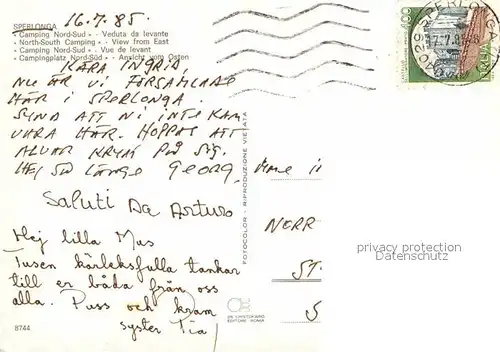 16.7.85.
SPERLONGA
"Camping Nord-Sud" - Veduta da levante
"North-South Camping" - View from East
"Camping Nord-Süd" - Vue de levant
"Campingplatz Nord-Süd" - Ansicht vom Osten
KARA INGRID,
NU ÄR VI FÖRSAMLADE
HÄR I SPERLONGA.
SYND ATT NI INTE KAN
VARA HÄR. HOPPAS ATT
ALVAR KRYAT PÅ SIG.
HEJ SÅ LÄNGE GEORG.
Saluti Da Arturo
Hej lilla Mus
Tusen kärleksfulla tankar
till er båda från oss
alla. Puss och kram
syster Pia
8744
FOTOCOLOR - RIPRODUZIONE VIETATA
EDITORE ROMA
NORR
ST
S
privacy protection
Datenschutz
400
ITALIA
SPERLONGA
04029
17.7.85